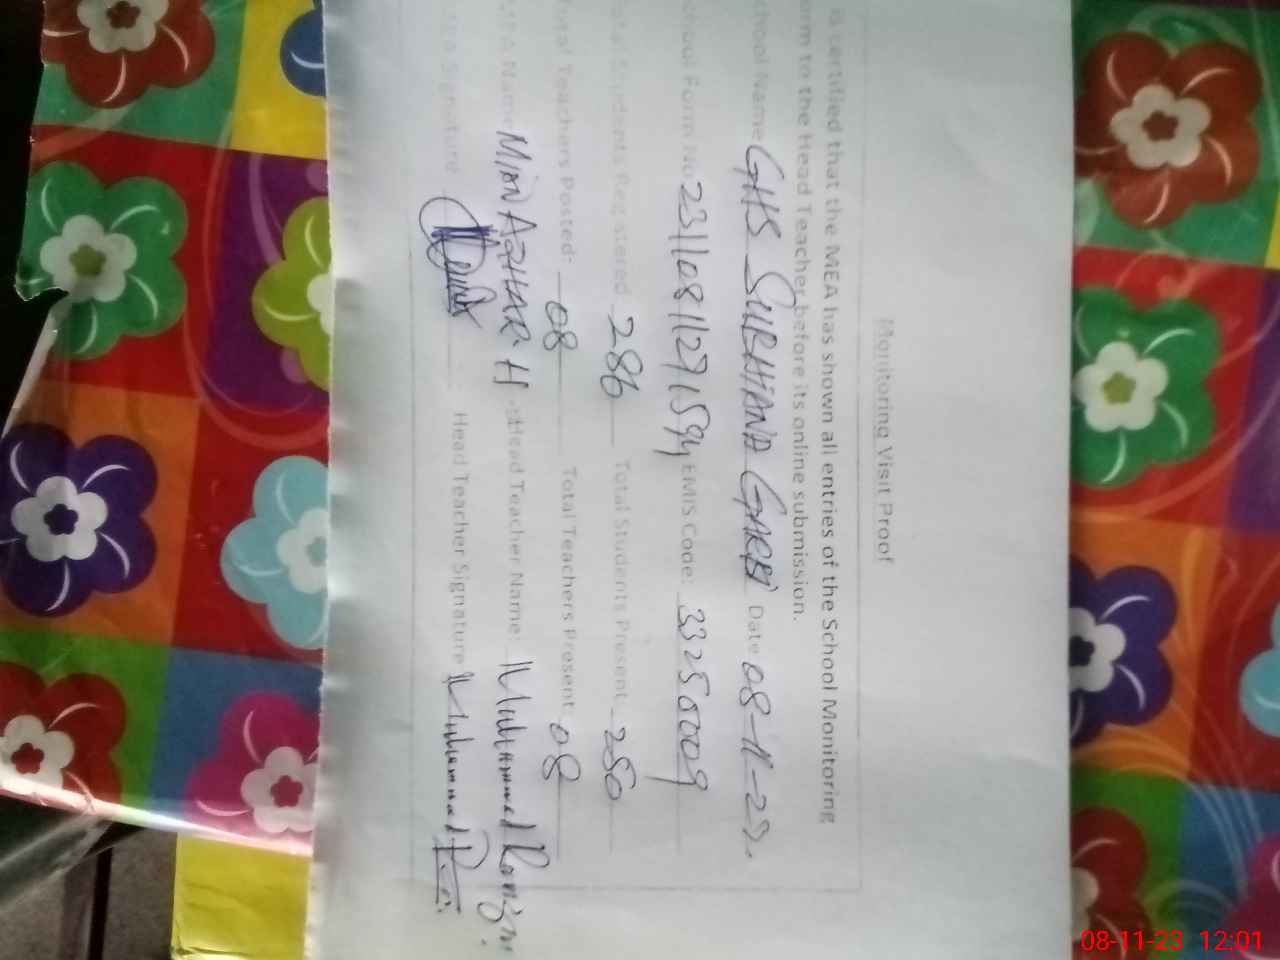 Monitoring Visit Proof
is certified that the MEA has shown all entries of the School Monitoring
orm to the Head Teacher before its online submission.
chool Name GHS SURHANA GARBI Date 08-11-23.
chool Form No 23110811271594 EMIS Code: 33250009
otal Students Registered 286 Total Students Present: 280
Total Teachers Posted: 08 Total Teachers Present 08
MEA Name MIAN AZHAR H Head Teacher Name: Muhammad
MEA Signature Head Teacher Signature Muhammad
08-11-23 12:01